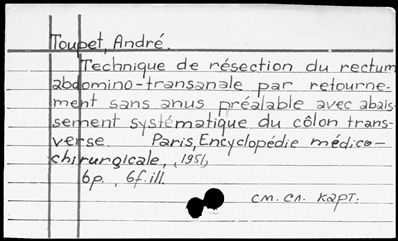 Toupet, André.
Technique de résection du rectum
abdomino-transanale par retourne-
ment sans anus préalable avec abais-
sement systématique du côlon trans-
verse. Paris, Encyclopédie médico-
chirurgicale, , 1951,
6p. , 6f. ill.
см. сл. карт.